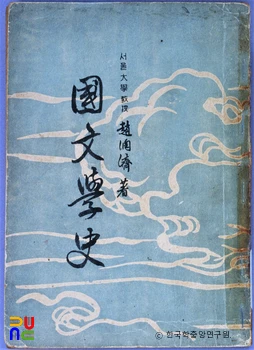 서울大學敎授 趙潤濟 著
國文學史
PU
NE
© 한국학중앙연구원